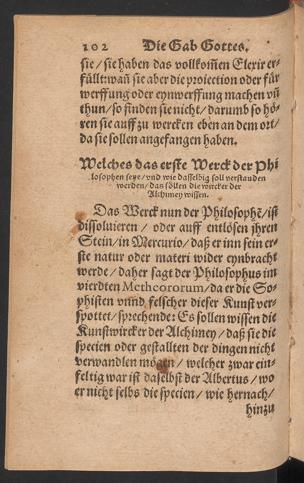 102 Die Gab Gottes.
sie / sie haben das vollkom̃en Elexir er-
füllt: wañ sie aber die proiection oder für
werffung oder eynwerffung machen vñ
thun / so finden sie nicht / darumb so hö-
ren sie auff zu wercken eben an dem ort /
da sie sollen angefangen haben.
Welches das erste Werck der Phi
losophen seye / vnd wie dasselbig soll verstanden
werden / das söllen die wircker der
Alchimey wissen.
Das Werck nun der Philosophē / ist
dissoluieren / oder auff entlösen jhren
Stein / in Mercurio / daß er inn sein er-
ste natur oder materi wider eynbracht
werde / daher sagt der Philosophus im
vierdten Metheororum / da er die So-
phisten vnnd felscher dieser Kunst ver-
spottet / sprechende: Es sollen wissen die
Kunstwircker der Alchimey / daß sie die
specien oder gestallten der dingen nicht
verwandlen mögen / welcher zwar ein-
feltig war ist daselbst der Albertus / wo
er nicht selbs die specien / wie hernach /
hinzu